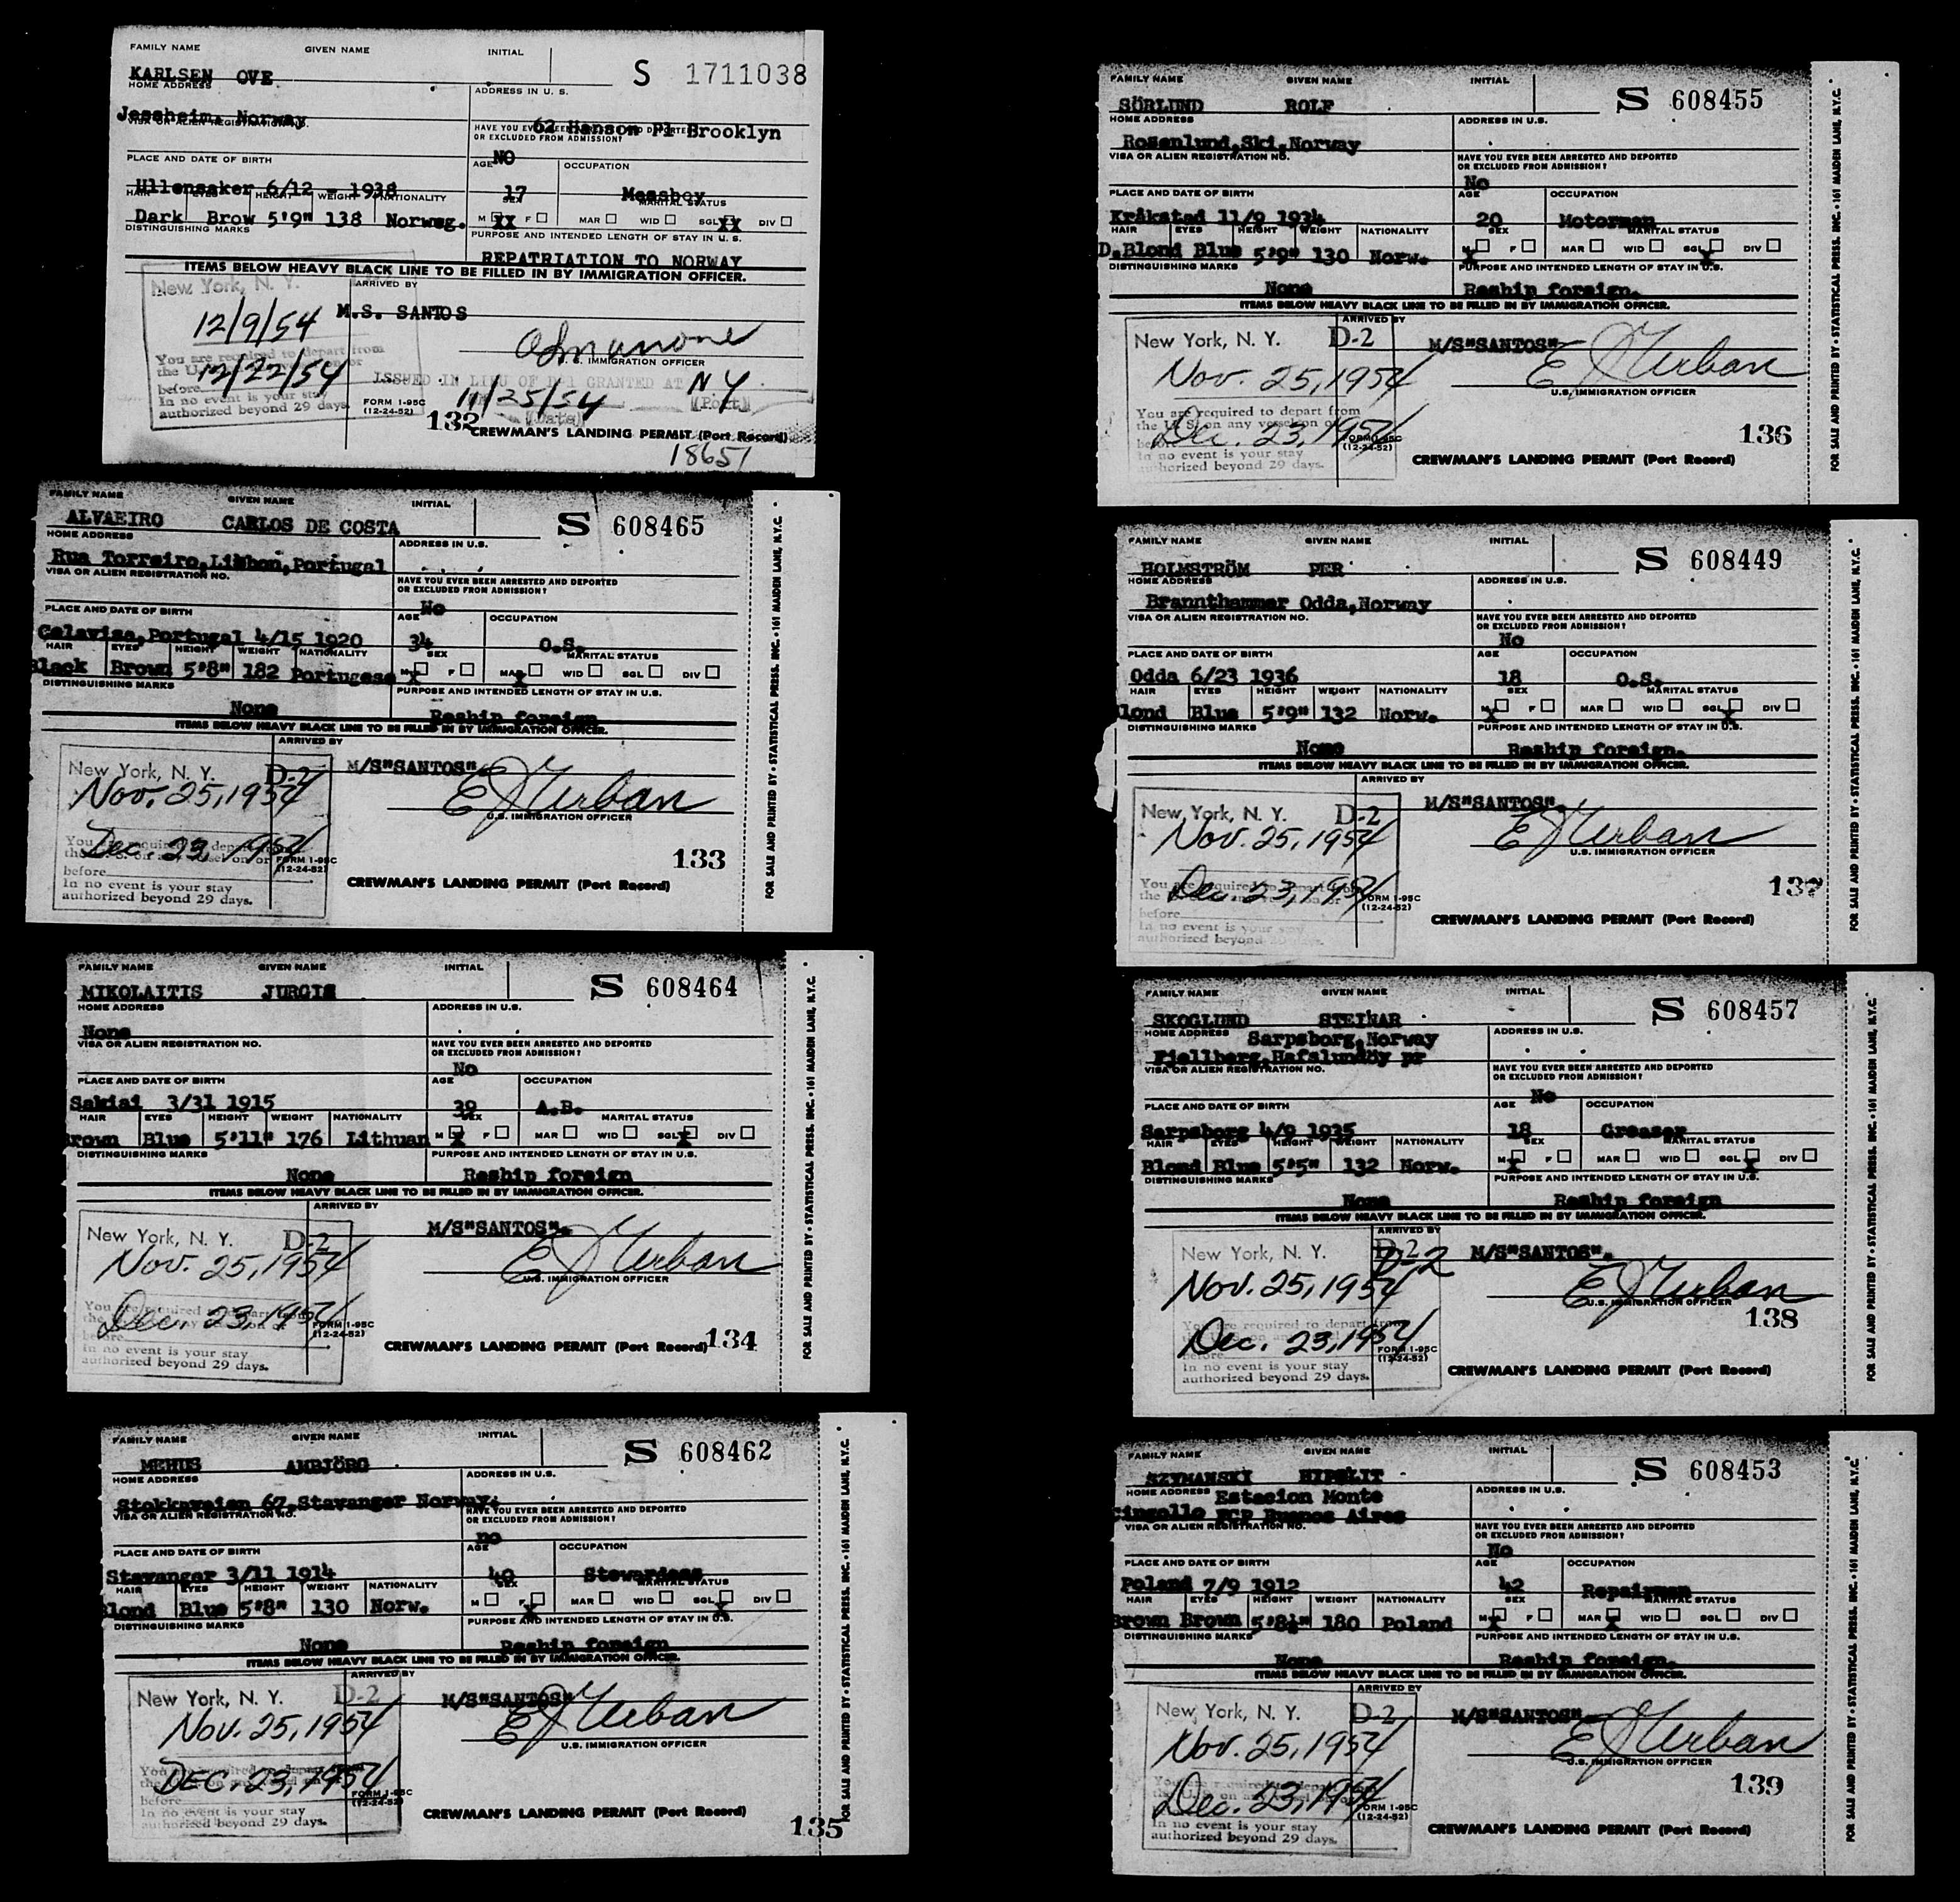 FAMILY NAME GIVEN NAME INITIAL
KARLSEN OVE S 1711038
HOME ADDRESS ADDRESS IN U. S.
Jessheim, Norway 62 Hanson Pl Brooklyn
VISA OR ALIEN REGISTRATION NO. HAVE YOU EVER BEEN ARRESTED AND DEPORTED
OR EXCLUDED FROM ADMISSION?
NO
PLACE AND DATE OF BIRTH AGE OCCUPATION
Ullensaker 6/12 - 1938 17 Messboy
HAIR EYES HEIGHT WEIGHT NATIONALITY SEX MARITAL STATUS
Dark Brow 5'9" 138 Norweg. M XX F MAR WID SGL XX DIV
DISTINGUISHING MARKS PURPOSE AND INTENDED LENGTH OF STAY IN U. S.
REPATRIATION TO NORWAY
ITEMS BELOW HEAVY BLACK LINE TO BE FILLED IN BY IMMIGRATION OFFICER.
New York, N. Y. ARRIVED BY
12/9/54 M.S. SANTOS
U. S. IMMIGRATION OFFICER
You are required to depart from
the U.S. or
before 12/22/54 ISSUED IN LIEU OF D-1 GRANTED AT NY
In no event is your stay 11/25/54 (Port)
authorized beyond 29 days. (Date)
FORM I-95C
(12-24-52) 132 CREWMAN'S LANDING PERMIT (Port Record)
18651
FAMILY NAME GIVEN NAME INITIAL
ALVAEIRO CARLOS DE COSTA S 608465
HOME ADDRESS ADDRESS IN U.S.
Rua Torreiro, Lisbon, Portugal
VISA OR ALIEN REGISTRATION NO. HAVE YOU EVER BEEN ARRESTED AND DEPORTED
OR EXCLUDED FROM ADMISSION?
No
PLACE AND DATE OF BIRTH AGE OCCUPATION
Celaviza, Portugal 4/15 1920 34 O.S.
HAIR EYES HEIGHT WEIGHT NATIONALITY SEX MARITAL STATUS
Black Brown 5'8" 182 Portugese M X F MAR X WID SGL DIV
DISTINGUISHING MARKS PURPOSE AND INTENDED LENGTH OF STAY IN U.S.
None Reship foreign
ITEMS BELOW HEAVY BLACK LINE TO BE FILLED IN BY IMMIGRATION OFFICER.
ARRIVED BY
New York, N. Y. D-2 M/S"SANTOS"
Nov. 25, 1954 E J Urban
U.S. IMMIGRATION OFFICER
You are required to depart from
the U.S. on any vessel on or
before Dec. 23, 1954
In no event is your stay
authorized beyond 29 days.
FORM I-95C
(12-24-52) 133
CREWMAN'S LANDING PERMIT (Port Record)
FOR SALE AND PRINTED BY • STATISTICAL PRESS, INC. • 161 MAIDEN LANE, N.Y.C.
FAMILY NAME GIVEN NAME INITIAL
MIKOLAITIS JURGIS S 608464
HOME ADDRESS ADDRESS IN U.S.
None
VISA OR ALIEN REGISTRATION NO. HAVE YOU EVER BEEN ARRESTED AND DEPORTED
OR EXCLUDED FROM ADMISSION?
No
PLACE AND DATE OF BIRTH AGE OCCUPATION
Sakiai 3/31 1915 39 A.B.
HAIR EYES HEIGHT WEIGHT NATIONALITY SEX MARITAL STATUS
Brown Blue 5'11" 176 Lithuan M X F MAR WID SGL X DIV
DISTINGUISHING MARKS PURPOSE AND INTENDED LENGTH OF STAY IN U.S.
None Reship foreign
ITEMS BELOW HEAVY BLACK LINE TO BE FILLED IN BY IMMIGRATION OFFICER.
ARRIVED BY
New York, N. Y. D-2 M/S"SANTOS".
Nov. 25, 1954 E J Urban
U.S. IMMIGRATION OFFICER
You are required to depart from
Dec. 23, 1954
before
In no event is your stay
authorized beyond 29 days.
FORM I-95C
(12-24-52)
CREWMAN'S LANDING PERMIT (Port Record) 134
FOR SALE AND PRINTED BY • STATISTICAL PRESS, INC. • 161 MAIDEN LANE, N.Y.C.
FAMILY NAME GIVEN NAME INITIAL
MEHUS ANBJÖRG S 608462
HOME ADDRESS ADDRESS IN U.S.
Stokkaveien 67, Stavanger Norway.
VISA OR ALIEN REGISTRATION NO. HAVE YOU EVER BEEN ARRESTED AND DEPORTED
OR EXCLUDED FROM ADMISSION?
no
PLACE AND DATE OF BIRTH AGE OCCUPATION
Stavanger 3/11 1914 40 Stewardess
HAIR EYES HEIGHT WEIGHT NATIONALITY SEX MARITAL STATUS
Blond Blue 5'8" 130 Norw. M F X MAR WID SGL X DIV
DISTINGUISHING MARKS PURPOSE AND INTENDED LENGTH OF STAY IN U.S.
None Reship foreign
ITEMS BELOW HEAVY BLACK LINE TO BE FILLED IN BY IMMIGRATION OFFICER.
ARRIVED BY
New York, N. Y. D-2 M/S"SANTOS"
Nov. 25, 1954 E J Urban
U.S. IMMIGRATION OFFICER
You are required to depart from
DEC. 23, 1954
before
In no event is your stay
authorized beyond 29 days.
FORM I-95C
(12-24-52)
CREWMAN'S LANDING PERMIT (Port Record)
135
FOR SALE AND PRINTED BY • STATISTICAL PRESS, INC. • 161 MAIDEN LANE, N.Y.C.
FAMILY NAME GIVEN NAME INITIAL
SÖRLUND ROLF S 608455
HOME ADDRESS ADDRESS IN U.S.
Rosenlund, Ski, Norway
VISA OR ALIEN REGISTRATION NO. HAVE YOU EVER BEEN ARRESTED AND DEPORTED
OR EXCLUDED FROM ADMISSION?
No
PLACE AND DATE OF BIRTH AGE OCCUPATION
Kråkstad 11/9 1934 20 Motorman
HAIR EYES HEIGHT WEIGHT NATIONALITY SEX MARITAL STATUS
D.Blond Blue 5'9" 130 Norw. M X F MAR WID SGL X DIV
DISTINGUISHING MARKS PURPOSE AND INTENDED LENGTH OF STAY IN U.S.
None Reship foreign.
ITEMS BELOW HEAVY BLACK LINE TO BE FILLED IN BY IMMIGRATION OFFICER.
ARRIVED BY
New York, N. Y. D-2 M/S"SANTOS"
Nov. 25, 1954 E J Urban
U.S. IMMIGRATION OFFICER
You are required to depart from
the U.S. on any vessel on or
before Dec. 23, 1954
In no event is your stay
authorized beyond 29 days.
FORM I-95C
(12-24-52) 136
CREWMAN'S LANDING PERMIT (Port Record)
FOR SALE AND PRINTED BY • STATISTICAL PRESS, INC. • 161 MAIDEN LANE, N.Y.C.
FAMILY NAME GIVEN NAME INITIAL
HOLMSTRÖM PER S 608449
HOME ADDRESS ADDRESS IN U.S.
Brannthammer Odda, Norway
VISA OR ALIEN REGISTRATION NO. HAVE YOU EVER BEEN ARRESTED AND DEPORTED
OR EXCLUDED FROM ADMISSION?
No
PLACE AND DATE OF BIRTH AGE OCCUPATION
Odda 6/23 1936 18 O.S.
HAIR EYES HEIGHT WEIGHT NATIONALITY SEX MARITAL STATUS
Blond Blue 5'9" 132 Norw. M X F MAR WID SGL X DIV
DISTINGUISHING MARKS PURPOSE AND INTENDED LENGTH OF STAY IN U.S.
None Reship foreign.
ITEMS BELOW HEAVY BLACK LINE TO BE FILLED IN BY IMMIGRATION OFFICER.
ARRIVED BY
New York, N. Y. D-2 M/S"SANTOS".
Nov. 25, 1954 E J Urban
U.S. IMMIGRATION OFFICER
You are required to depart from
Dec. 23, 1954
before
In no event is your stay
authorized beyond 29 days.
FORM I-95C
(12-24-52) 137
CREWMAN'S LANDING PERMIT (Port Record)
FOR SALE AND PRINTED BY • STATISTICAL PRESS, INC. • 161 MAIDEN LANE, N.Y.C.
FAMILY NAME GIVEN NAME INITIAL
SKOGLUND STEINAR S 608457
HOME ADDRESS Sarpsborg, Norway ADDRESS IN U.S.
Fjellberg, Hafslundöy pr
VISA OR ALIEN REGISTRATION NO. HAVE YOU EVER BEEN ARRESTED AND DEPORTED
OR EXCLUDED FROM ADMISSION?
No
PLACE AND DATE OF BIRTH AGE OCCUPATION
Sarpsborg 4/9 1935 18 Greaser
HAIR EYES HEIGHT WEIGHT NATIONALITY SEX MARITAL STATUS
Blond Blue 5'5" 132 Norw. M X F MAR WID SGL X DIV
DISTINGUISHING MARKS PURPOSE AND INTENDED LENGTH OF STAY IN U.S.
None Reship foreign
ITEMS BELOW HEAVY BLACK LINE TO BE FILLED IN BY IMMIGRATION OFFICER.
ARRIVED BY
New York, N. Y. D-2 D-2 M/S"SANTOS".
Nov. 25, 1954 E J Urban
U.S. IMMIGRATION OFFICER
138
You are required to depart from
Dec. 23, 1954
before
In no event is your stay
authorized beyond 29 days.
FORM I-95C
(12-24-52)
CREWMAN'S LANDING PERMIT (Port Record)
FOR SALE AND PRINTED BY • STATISTICAL PRESS, INC. • 161 MAIDEN LANE, N.Y.C.
FAMILY NAME GIVEN NAME INITIAL
SZYMANSKI HIPOLIT S 608453
HOME ADDRESS Estacion Monte ADDRESS IN U.S.
FCP Buenos Aires
VISA OR ALIEN REGISTRATION NO. HAVE YOU EVER BEEN ARRESTED AND DEPORTED
OR EXCLUDED FROM ADMISSION?
No
PLACE AND DATE OF BIRTH AGE OCCUPATION
Poland 7/9 1912 42 Repairman
HAIR EYES HEIGHT WEIGHT NATIONALITY SEX MARITAL STATUS
Brown Brown 5'8½" 180 Poland M X F MAR X WID SGL DIV
DISTINGUISHING MARKS PURPOSE AND INTENDED LENGTH OF STAY IN U.S.
None Reship foreign.
ITEMS BELOW HEAVY BLACK LINE TO BE FILLED IN BY IMMIGRATION OFFICER.
ARRIVED BY
New York, N. Y. D-2 M/S"SANTOS"
Nov. 25, 1954 E J Urban
U.S. IMMIGRATION OFFICER
139
You are required to depart from
Dec. 23, 1954
before
In no event is your stay
authorized beyond 29 days.
FORM I-95C
(12-24-52)
CREWMAN'S LANDING PERMIT (Port Record)
FOR SALE AND PRINTED BY • STATISTICAL PRESS, INC. • 161 MAIDEN LANE, N.Y.C.